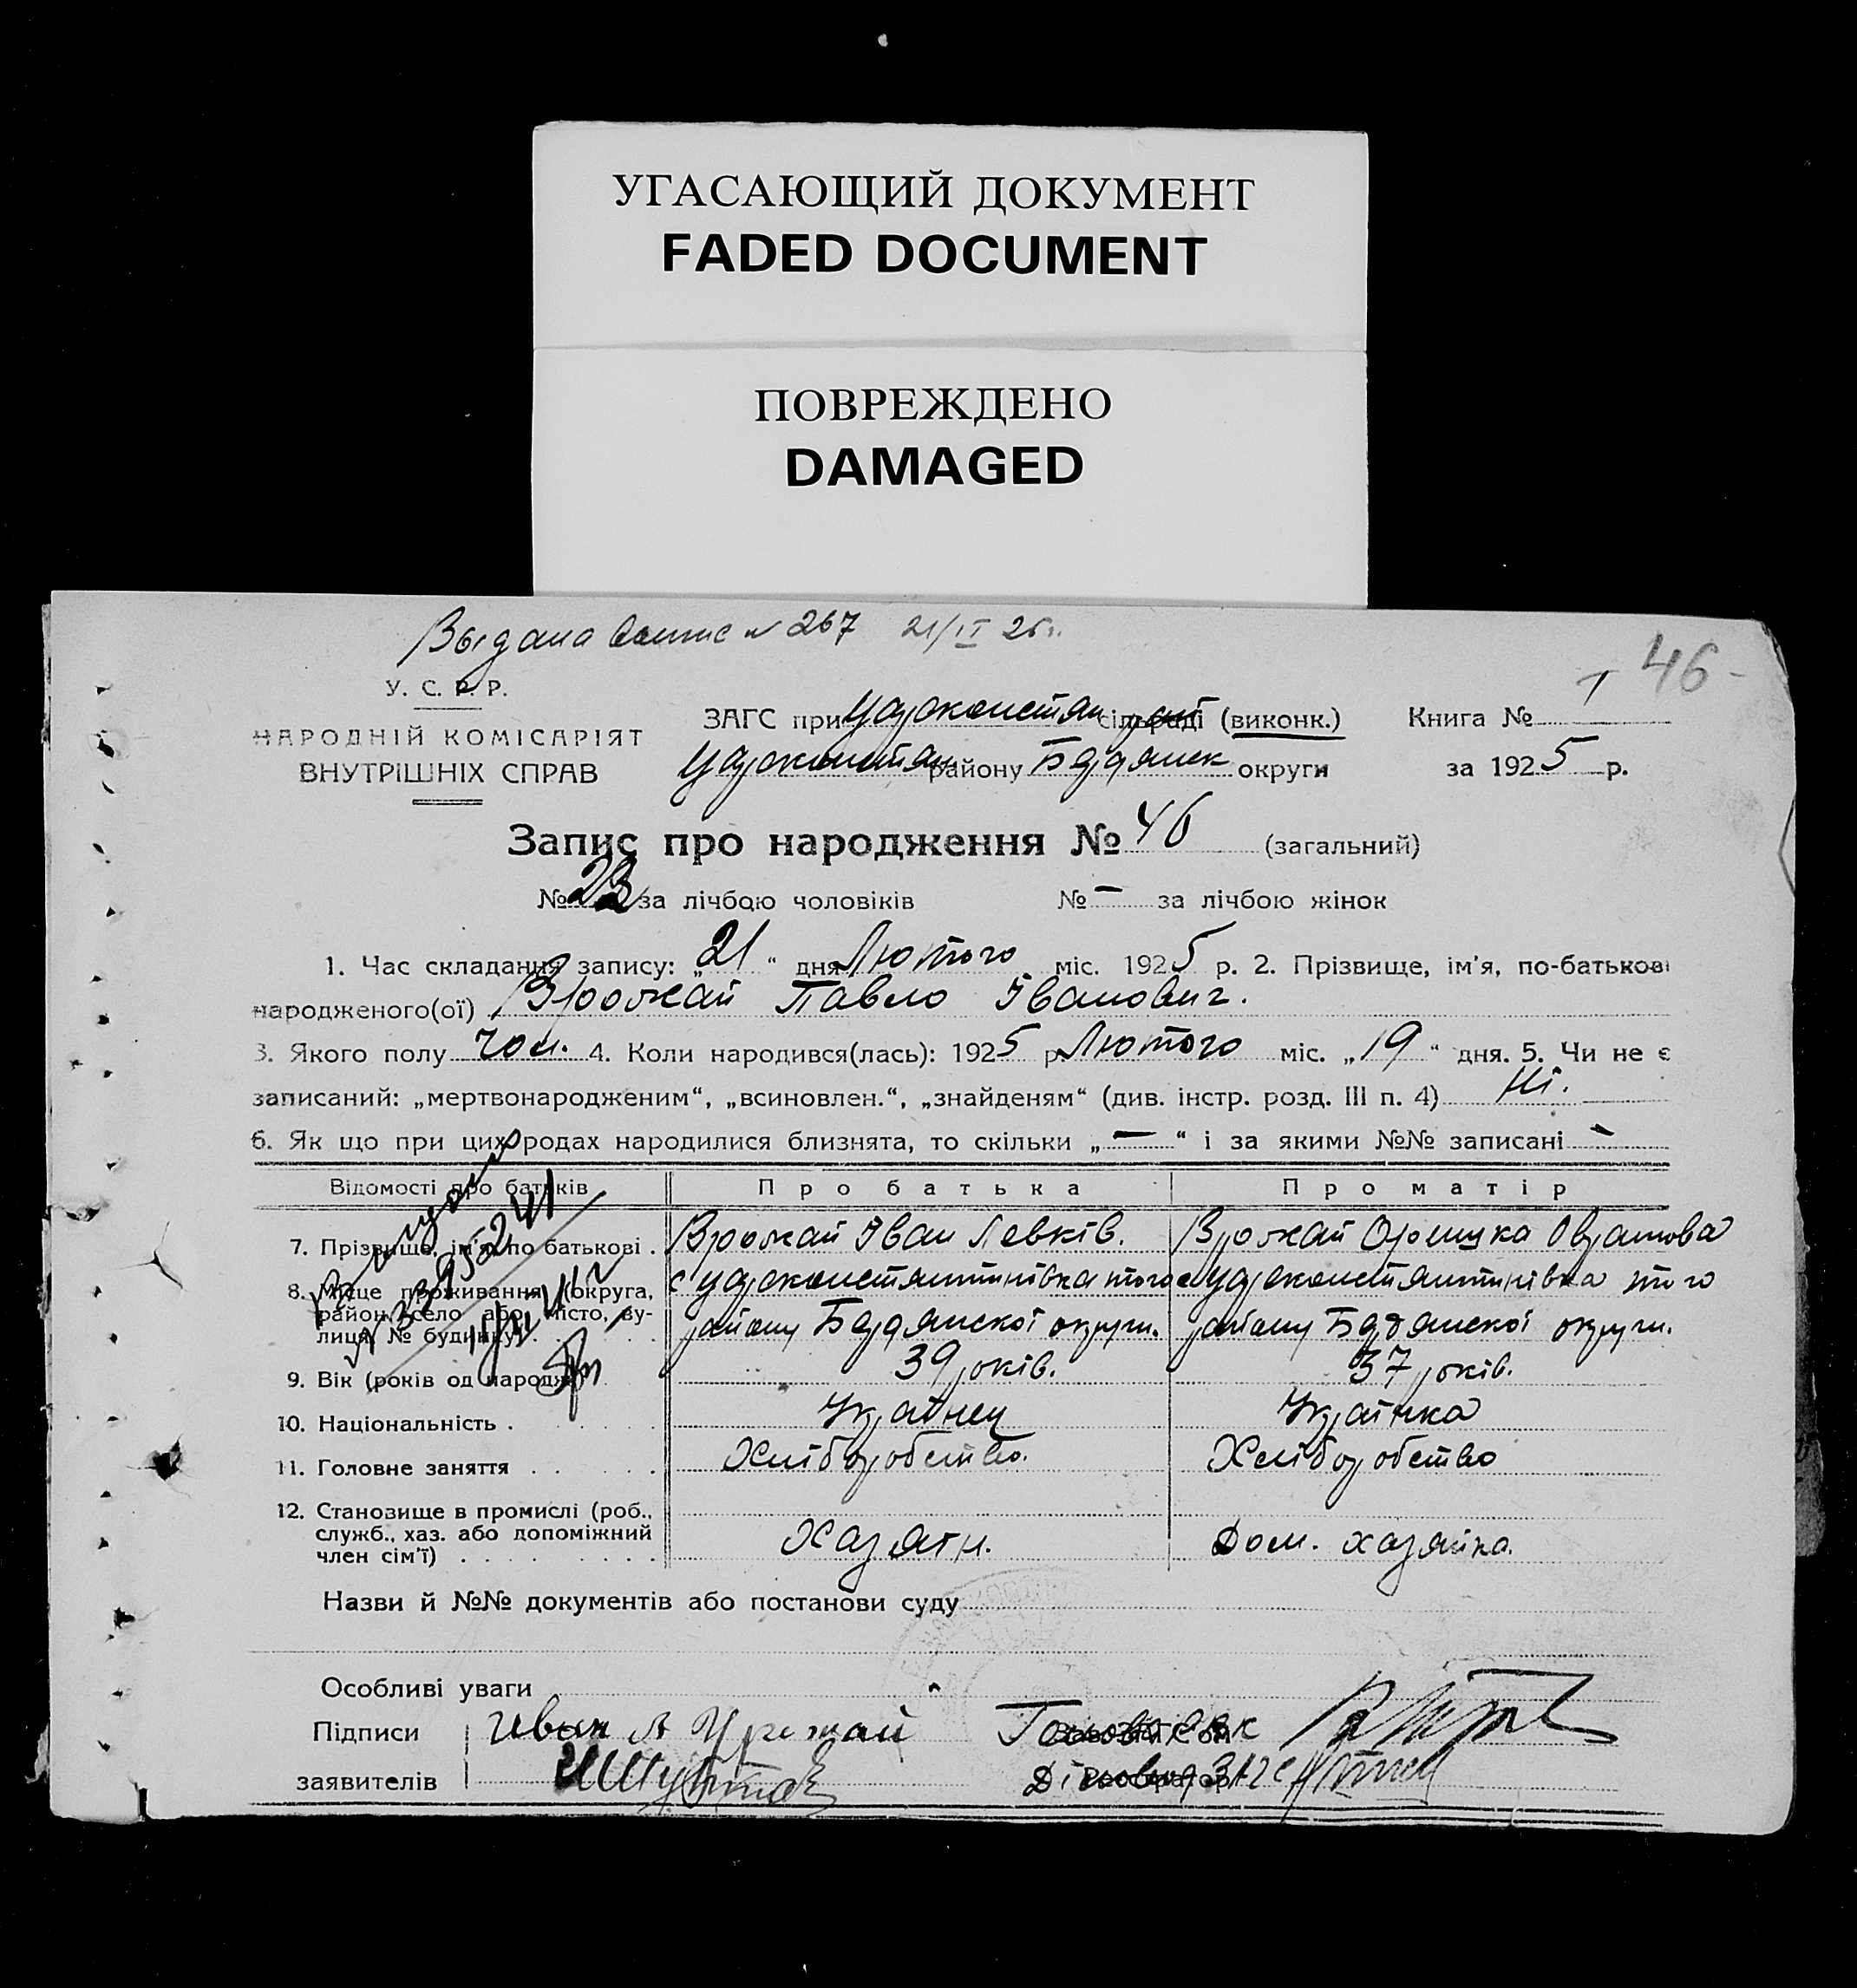 УГАСАЮЩИЙ ДОКУМЕНТ
FADED DOCUMENT
ПОВРЕЖДЕНО
DAMAGED
Выдана № 267 21/II 25
46
У. С. Р. Р.
НАРОДНІЙ КОМІСАРІЯТ
ВНУТРІШНІХ СПРАВ
ЗАГС при Царконстян сільраді (виконк.) Книга № 1
Царконстян району Бердянск округи за 1925 р.
Запис про народження № 46 (загальний)
№ 23 за лічбою чоловіків № — за лічбою жінок
1. Час складання запису: „21“ дня Лютого міс. 1925 р. 2. Прізвище, ім'я, по-батькові
народженого(ої) Врожай Павло Іванович.
3. Якого полу чол. 4. Коли народився(лась): 1925 р. Лютого міс. „19“ дня. 5. Чи не є
записаний: „мертвонародженим“, „всиновлен.“, „знайденям“ (див. інстр. розд. III п. 4) Ні.
6. Як що при цих родах народилися близнята, то скільки „—“ і за якими №№ записані -
Відомості про батьків Про батька Про матір
7. Прізвище, ім'я, по батькові . Врожай Іван Левків. Врожай Оришка
8. Місце проживання (округа, с Царконстянтинівка того с Царконстянтинівка того
район, село або місто, ву- району Бердянскої округи. району Бердянскої округи.
лиця, № будинку) . . .
9. Вік (років од народж.) 39 років. 37 років.
10. Національність . Українец Українка
11. Головне заняття . . . Хліборобство. Хліборобство
12. Становище в промислі (роб.,
служб., хаз. або допоміжний
член сім'ї) . . . Хазяїн. Дом. хазяйка.
Назви й №№ документів або постанови суду
Особливі уваги
Підписи Иван Л Урожай Голова
заявителів Діловод ЗАГС